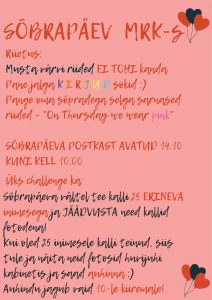 SÕBRAPÄEV MRK-s
Riietus:
Musta värvi riided EI TOHI kanda
Pane jalga KIRJUD sokid :)
Pange oma sõpradega selga sarnased
riided - "On Thursday we wear pink"
SÕBRAPÄEVA POSTKAST AVATUD 14.10
KUNI KELL 10.00
Üks challenge ka:
Sõbrapäeva vältel tee kalli 25 ERINEVA
inimesega ja JÄÄDVUSTA need kallid
fotodena!
Kui oled 25 inimesele kalli teinud, siis
tule ja näita neid fotosid huvijuhi
kabinetis ja saad auhinna :)
Auhindu jagub vaid 10-le kiiremale!